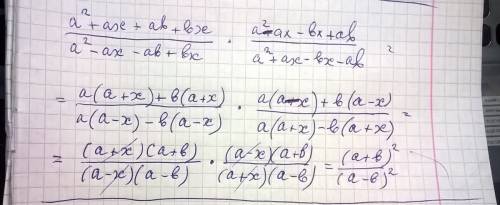 (a² + ax + ab + bx)/(a² - ax - ab + bx) · (a² - ax - bx + ab)/(a² + ax - bx - ab) =
= (a(a+x) + b(a+x))/(a(a-x) - b(a-x)) · (a(a-x) + b(a-x))/(a(a+x) - b(a+x)) =
= ((a+x)(a+b))/((a-x)(a-b)) · ((a-x)(a+b))/((a+x)(a-b)) = (a+b)²/(a-b)²